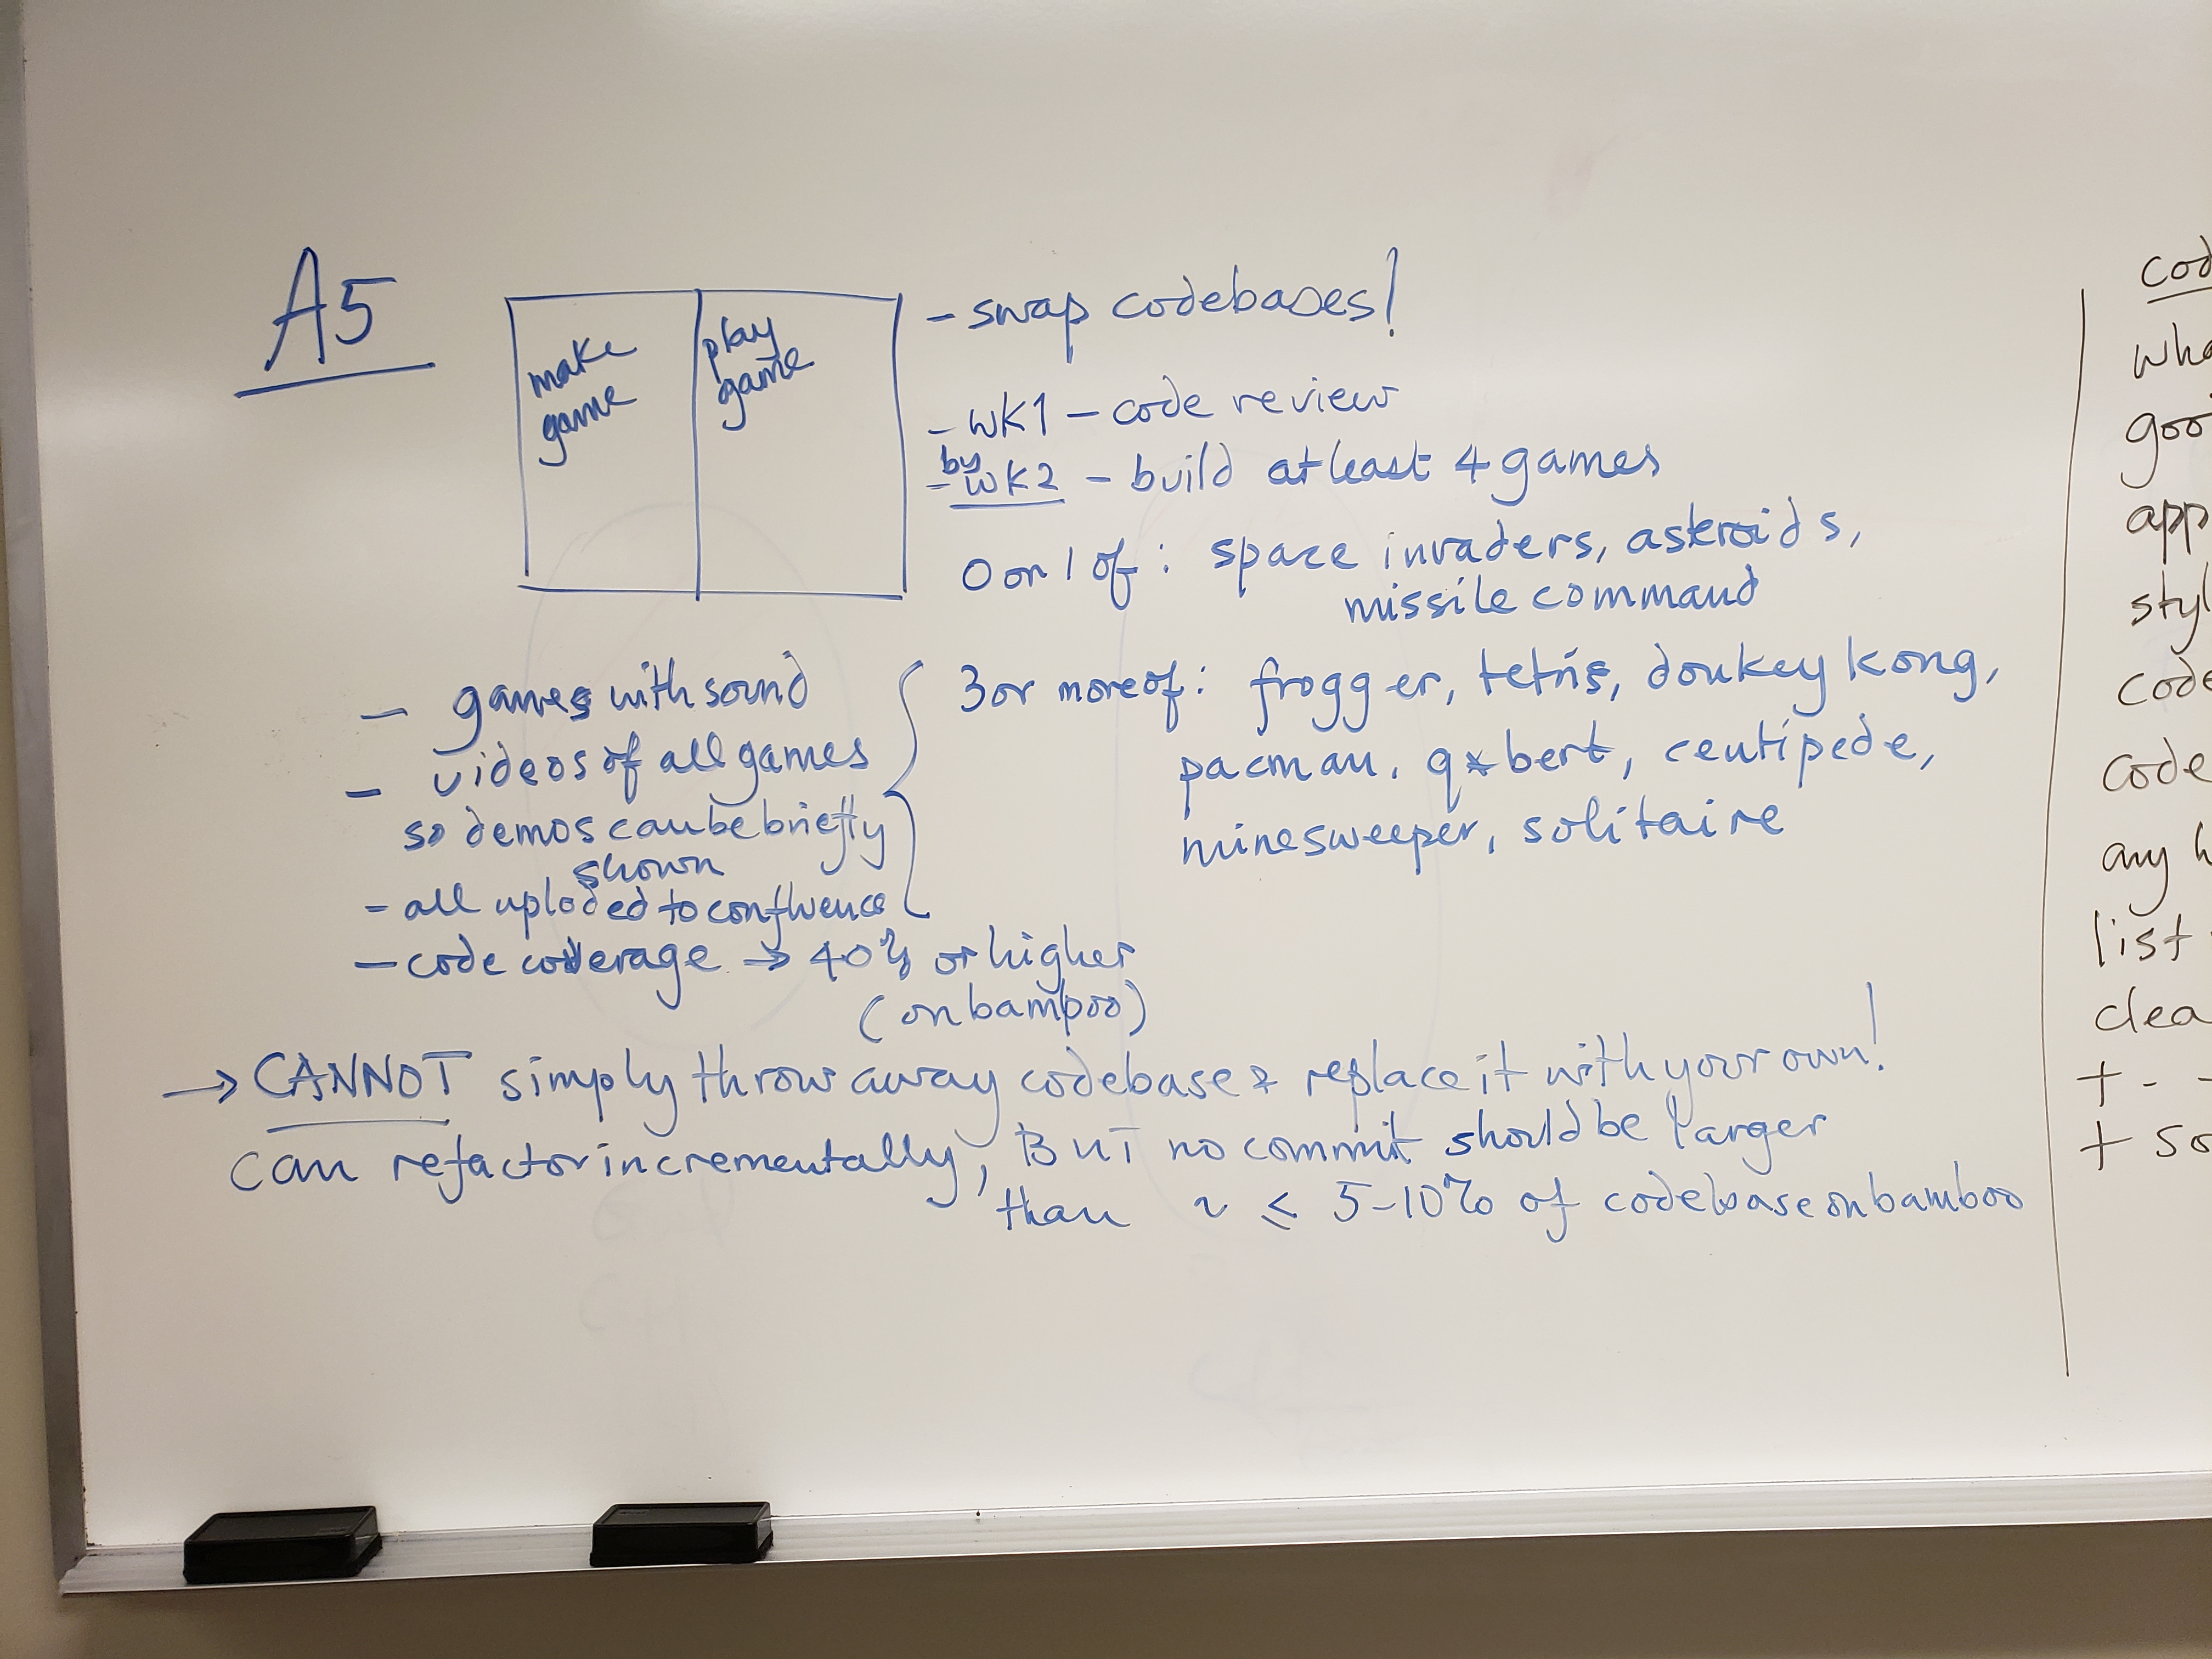 A5
make
game
play
game
- swap codebases!
- wk1 - code review
by
- wk2 - build at least 4 games
0 or 1 of: space invaders, asteroids,
missile command
3 or more of: frogger, tetris, donkey kong,
pacman, q*bert, centipede,
minesweeper, solitaire
- games with sound
- videos of all games
so demos can be briefly
shown
- all uploded to confluence
- code coverage → 40% or higher
(on bamboo)
→ CANNOT simply throw away codebase & replace it with your own!
can refactor incrementally, BUT no commit should be larger
than ~ ≤ 5-10% of codebase on bamboo
cod
wha
goo
app
styl
code
code
any h
list
clea
+ - -
+ so